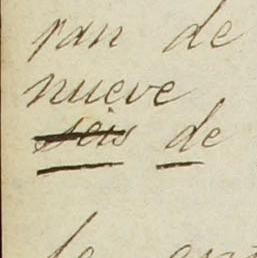 ran de
nueve
seis de